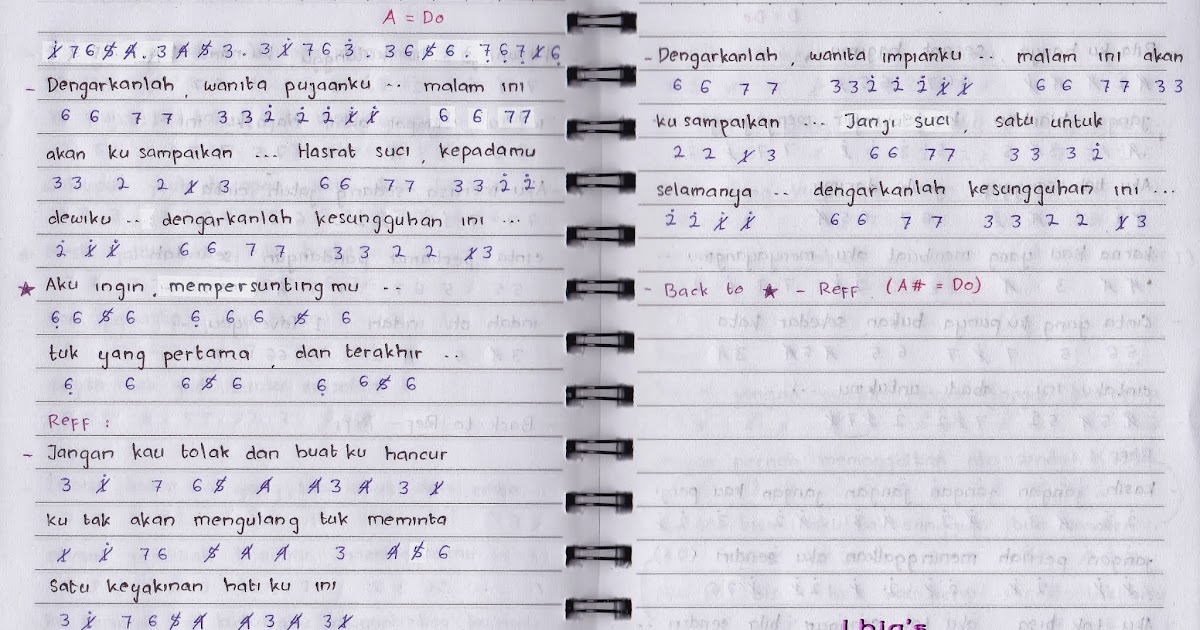 A = Do
1̸̇ 7 6 5̸ 4̸ . 3 4̸ 5̸ 3 . 3 1̸̇ 7 6 3̇ . 3 6 5̸ 6 . 7̣ 6̣ 7̣ 1̸ 6̣
- Dengarkanlah, wanita pujaanku .. malam ini
6 6 7 7 3 3 2̇ 2̇ 2̇ 1̸̇ 1̸̇ 6 6 7 7
akan ku sampaikan ... Hasrat suci, kepadamu
3 3 2 2 1̸ 3 6 6 7 7 3 3 2̇ 2̇
dewiku .. dengarkanlah kesungguhan ini ...
2̇ 1̸̇ 1̸̇ 6 6 7 7 3 3 2 2 1̸ 3
★ Aku ingin, mempersunting mu ..
6̣ 6 5̸ 6 6̣ 6 6 5̸ 6
tuk yang pertama, dan terakhir ..
6̣ 6 6 5̸ 6 6̣ 6 5̸ 6
Reff :
- Jangan kau tolak dan buat ku hancur
3 1̸̇ 7 6 5̸ 4̸ 4̸ 3 4̸ 3 1̸
ku tak akan mengulang tuk meminta
1̸ 1̸̇ 7 6 5̸ 4̸ 4̸ 3 4̸ 5̸ 6
Satu keyakinan hati ku ini
3 1̸̇ 7 6 5̸ 4̸ 4̸ 3 4̸ 3 1̸
- Dengarkanlah, wanita impianku .. malam ini akan
6 6 7 7 3 3 2̇ 2̇ 2̇ 1̸̇ 1̸̇ 6 6 7 7 3 3
ku sampaikan ... Janji suci, satu untuk
2 2 1̸ 3 6 6 7 7 3 3 3 2̇
selamanya ... dengarkanlah kesungguhan ini ...
2̇ 2̇ 1̸̇ 1̸̇ 6 6 7 7 3 3 2 2 1̸ 3
- Back to ★ - Reff (A# = Do)